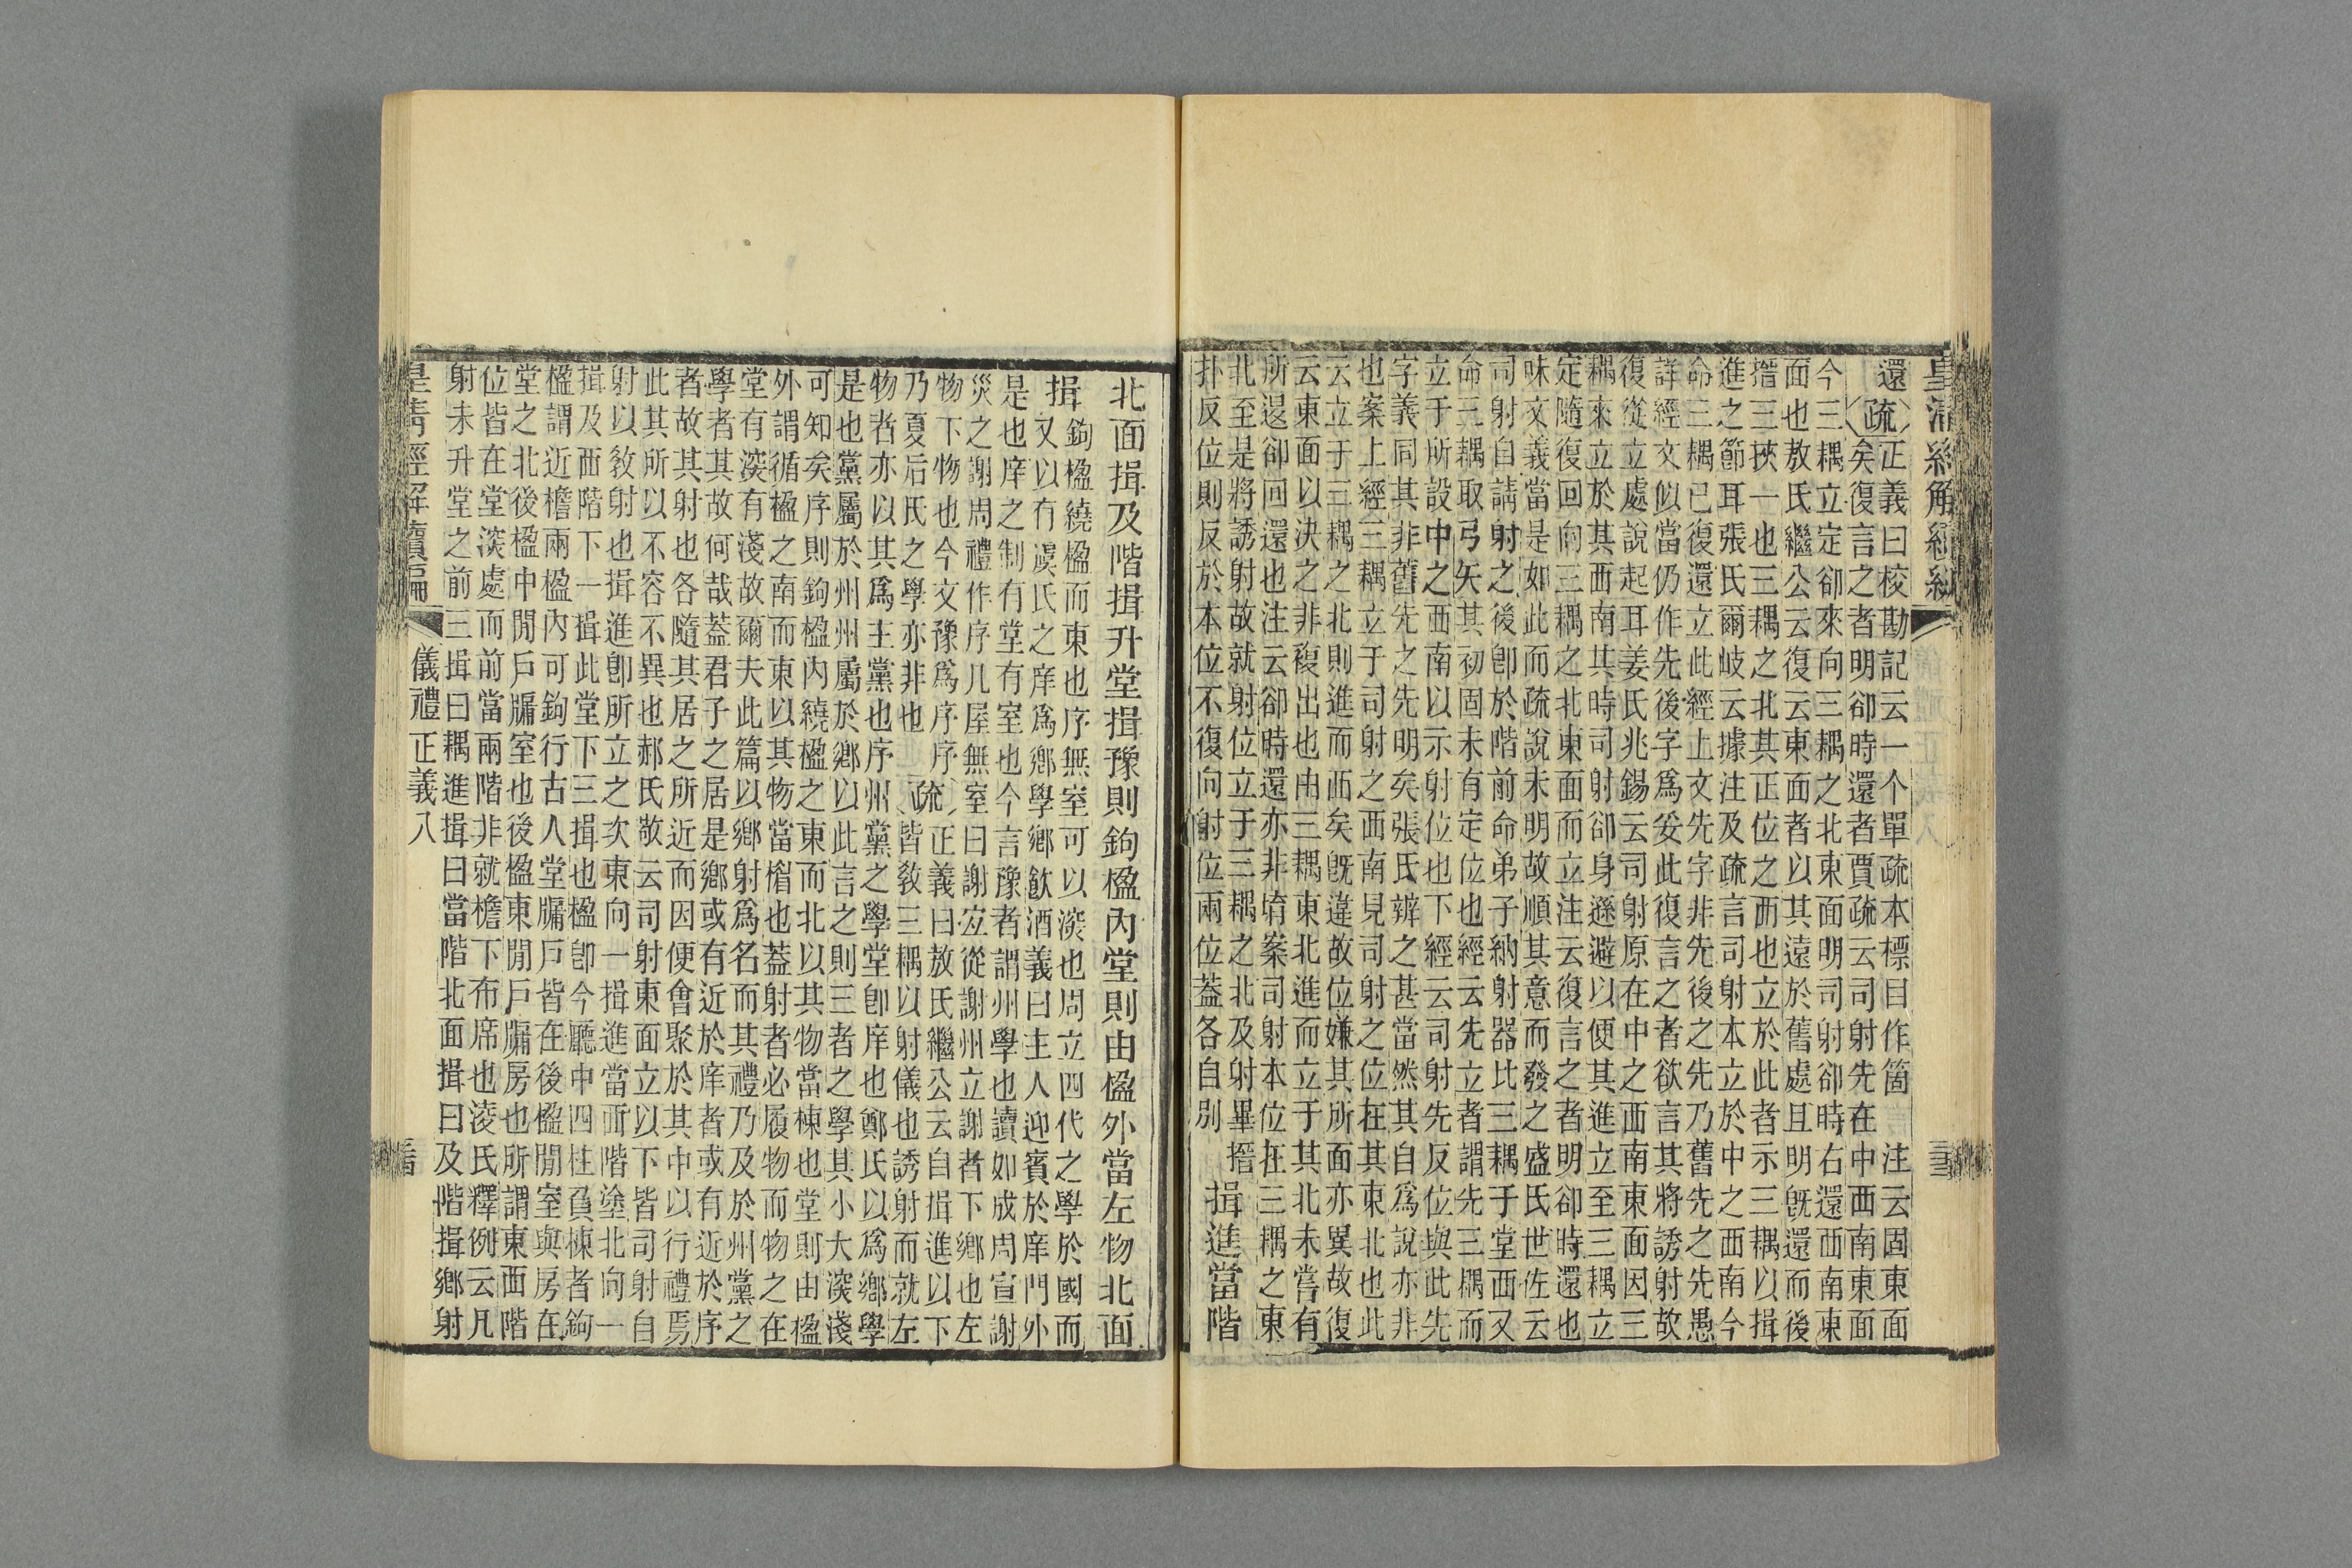 皇清經解續編
還
疏
正義曰校勘記云一个單疏本標目作箇 注云固東面
矣復言之者明卻時還者賈疏云司射先在中西南東面
今三耦立定卻來向三耦之北東面明司射卻時右還西南東
面也敖氏繼公云復云東面者以其遠於舊處且明旣還而後
搢三挾一也三耦之北其正位之西也立於此者示三耦以揖
進之節耳張氏爾岐云據注及疏言司射本立於中之西南今
命三耦已復還立此經上文先字非先後之先乃舊先之先愚
詳經文似當仍作先後字爲妥此復言之者欲言其將誘射故
復從立處說起耳姜氏兆錫云司射原在中之西南東面因三
耦來立於其西南其時司射卻身遜避以便其進立至三耦立
定隨復回向三耦之北東面而立注云復言之者明卻時還也
味文義當是如此而疏說未明故順其意而發之盛氏世佐云
司射自請射之後卽於階前命弟子納射器比三耦于堂西又
命三耦取弓矢其初固未有定位也經云先立者謂先三耦而
立于所設中之西南以示射位也下經云司射先反位與此先
字義同其非舊先之先明矣張氏辨之甚當然其自爲說亦非
也案上經三耦立于司射之西南見司射之位在其東北也此
云立于三耦之北則進而西矣旣違故位嫌其所面亦異故復
云東面以決之非複出也由三耦東北進而立于其北未嘗有
所還卻回還也注云卻時還亦非堉案司射本位在三耦之東
北至是將誘射故就射位立于三耦之北及射畢搢
扑反位則反於本位不復向射位兩位蓋各自別
揖進當階
北面揖及階揖升堂揖豫則鉤楹內堂則由楹外當左物北面
揖
鉤楹繞楹而東也序無室可以深也周立四代之學於國而
又以有虞氏之庠爲鄉學鄉飮酒義曰主人迎賓於庠門外
是也庠之制有堂有室也今言豫者謂州學也讀如成周宣謝
災之謝周禮作序凡屋無室曰謝宜從謝州立謝者下鄉也左
物下物也今文豫爲序序
乃夏后氏之學亦非也
疏
正義曰敖氏繼公云自揖進以下
皆敎三耦以射儀也誘射而就左
物者亦以其爲主黨也序州黨之學堂卽庠也鄭氏以爲鄉學
是也黨屬於州州屬於鄉以此言之則三者之學其小大深淺
可知矣序則鉤楹內繞楹之東而北以其物當棟也堂則由楹
外謂循楹之南而東以其物當楣也蓋射者必履物而物之在
堂有深有淺故爾夫此篇以鄉射爲名而其禮乃及於州黨之
學者其故何哉蓋君子之居是鄉或有近於庠者或有近於序
者故其射也各隨其居之所近而因便會聚於其中以行禮焉
此其所以不容不異也郝氏敬云司射東面立以下皆司射自
射以敎射也揖進卽所立之次東向一揖進當西階塗北向一
揖及西階下一揖此堂下三揖也楹卽今廳中四柱負棟者鉤
楹謂近檐兩楹內可鉤行古人堂牖戶皆在後楹閒室與房在
堂之北後楹中閒戶牖室也後楹東閒戶牖房也所謂東西階
位皆在堂深處而前當兩階非就檐下布席也淩氏釋例云凡
射未升堂之前三揖曰耦進揖曰當階北面揖曰及階揖鄉射
皇清經解續編 儀禮正義八